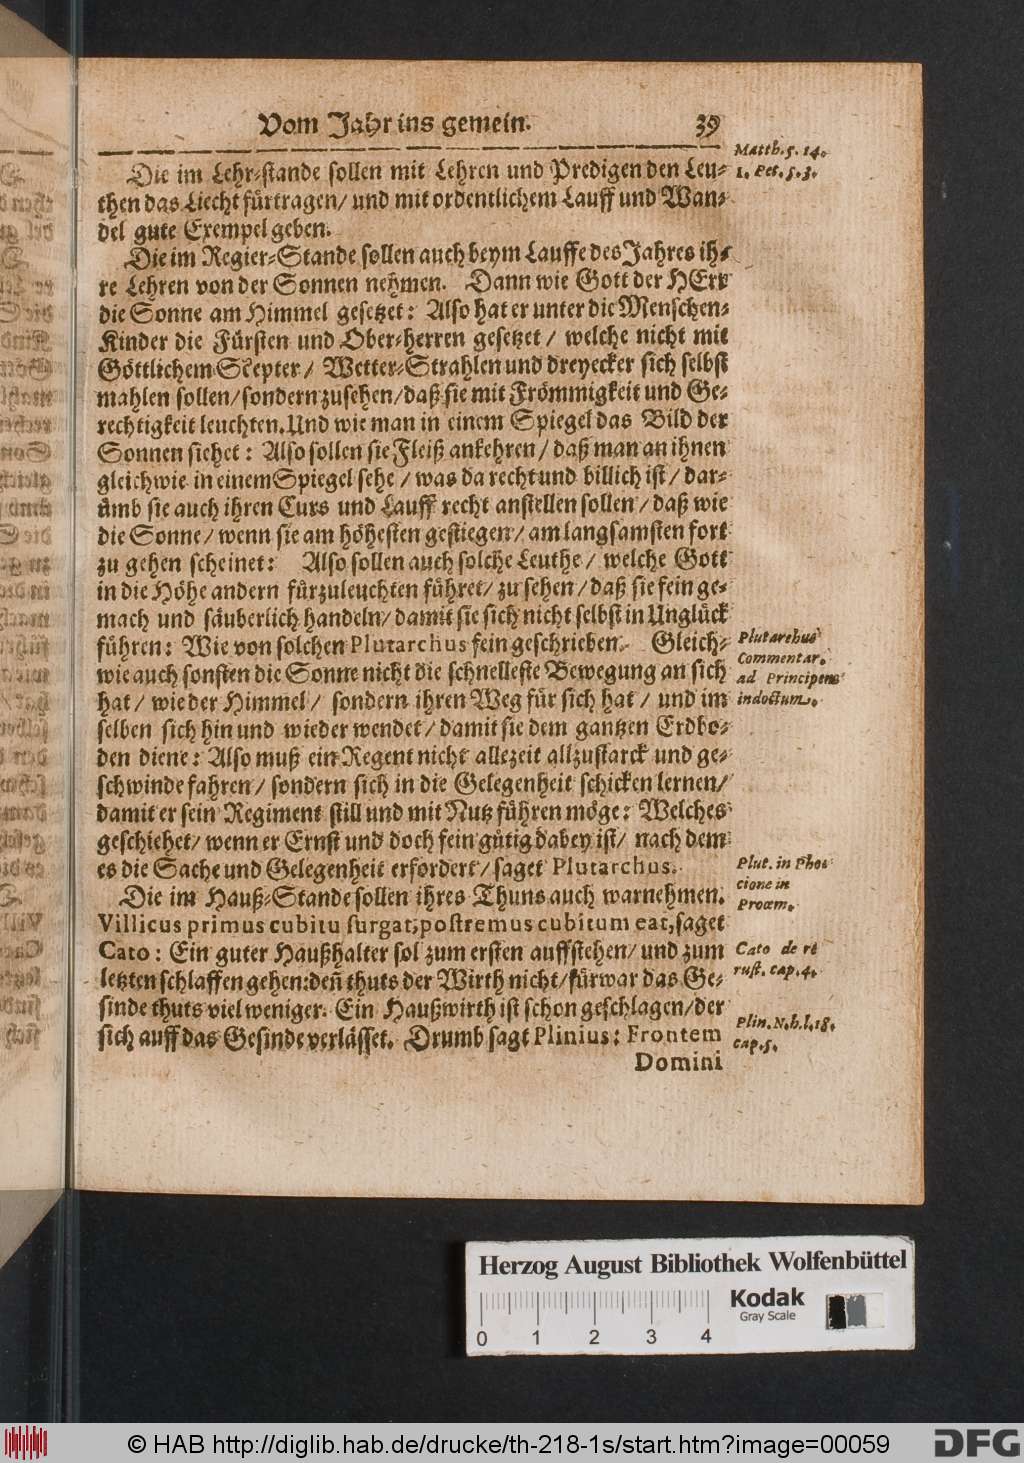 Vom Jahr ins gemein. 39
Die im Lehr-stande sollen mit Lehren und Predigen den Leu-
then das Liecht fürtragen/ und mit ordentlichem Lauff und Wan-
del gute Exempel geben.
Matth. 5. 14.
1. Pet. 5. 3.
Die im Regier-Stande sollen auch beym Lauffe des Jahres ih-
re Lehren von der Sonnen nehmen. Dann wie Gott der HErr
die Sonne am Himmel gesetzet: Also hat er unter die Menschen-
Kinder die Fürsten und Ober-herren gesetzet / welche nicht mit
Göttlichem Scepter/ Wetter-Strahlen und dreyecker sich selbst
mahlen sollen/sondern zusehen/daß sie mit Frömmigkeit und Ge-
rechtigkeit leuchten. Und wie man in einem Spiegel das Bild der
Sonnen siehet: Also sollen sie Fleiß ankehren/ daß man an ihnen
gleichwie in einem Spiegel sehe / was da recht und billich ist/ dar-
ümb sie auch ihren Curs und Lauff recht anstellen sollen /daß wie
die Sonne/ wenn sie am höhesten gestiegen/ am langsamsten fort
zu gehen scheinet: Also sollen auch solche Leuthe/ welche Gott
in die Höhe andern fürzuleuchten führet/ zu sehen/daß sie fein ge-
mach und säuberlich handeln/damit sie sich nicht selbst in Unglück
führen: Wie von solchen Plutarchus fein geschrieben. Gleich-
wie auch sonsten die Sonne nicht die schnelleste Bewegung an sich
hat/ wie der Himmel/ sondern ihren Weg für sich hat / und im
selben sich hin und wieder wendet/damit sie dem gantzen Erdbo-
den diene: Also muß ein Regent nicht allezeit allzustarck und ge-
schwinde fahren/ sondern sich in die Gelegenheit schicken lernen/
damit er sein Regiment still und mit Nutz führen möge: Welches
geschiehet/ wenn er Ernst und doch fein gütig dabey ist/ nach dem
es die Sache und Gelegenheit erfordert/ saget Plutarchus.
Plutarchus
Commentar.
ad Principem
indoctum.
Plut. in Pho-
cione in
Proœm.
Die im Hauß-Stande sollen ihres Thuns auch warnehmen.
Villicus primus cubitu surgat, postremus cubitum eat, saget
Cato: Ein guter Haußhalter sol zum ersten auffstehen/ und zum
letzten schlaffen gehen: deñ thuts der Wirth nicht/fürwar das Ge-
sinde thuts viel weniger. Ein Haußwirth ist schon geschlagen/der
sich auff das Gesinde verlässet. Drumb sagt Plinius: Frontem
Domini
Cato de re
rust. cap. 4.
Plin. N. h. l. 18.
cap. 5.
Herzog August Bibliothek Wolfenbüttel
Kodak
Gray Scale
0 1 2 3 4
© HAB http://diglib.hab.de/drucke/th-218-1s/start.htm?image=00059
DFG